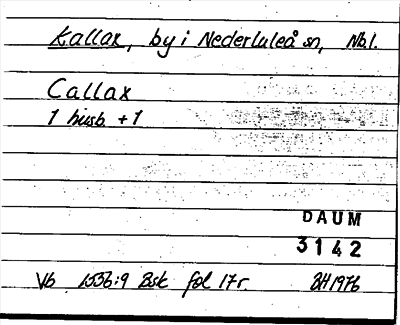 Kallax, by i Nederluleå sn, Nb.l.
Callax
1 husb. +1
DAUM
3142
Vb 1536:9 Bsk fol 17r BH 1976